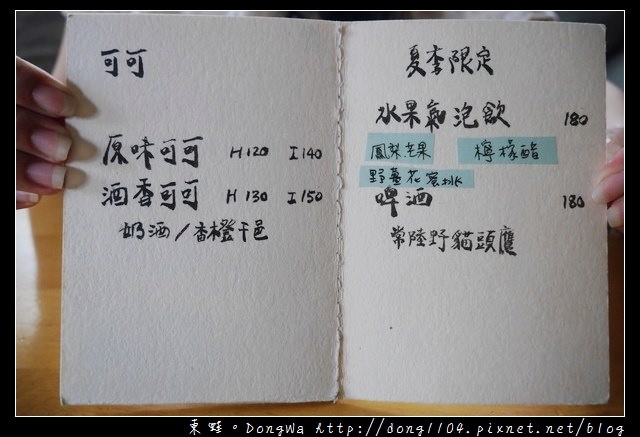 可可
原味可可 H 120 I 140
酒香可可 H 130 I 150
奶酒/香橙干邑
夏季限定
水果氣泡飲 180
鳳梨芒果 檸檬醋
野薑花蜜桃
啤酒 180
常陸野貓頭鷹
東蛙。DongWa http://dong1104.pixnet.net/blog